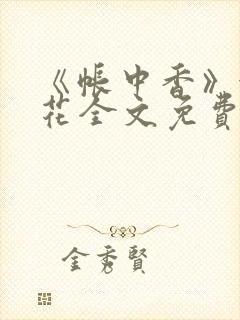 《帐中香》
花全文免費
金秀賢